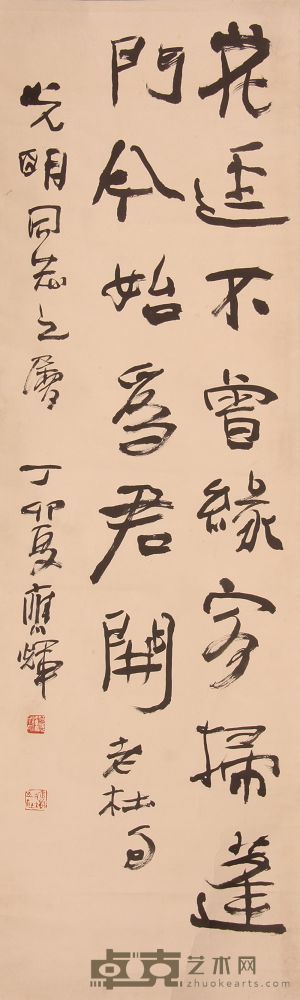 花迳不曾緣客掃蓬
門今始為君開 老杜句
光明同志之屬 丁卯夏應輝
卓克艺术网
zhuokearts.com